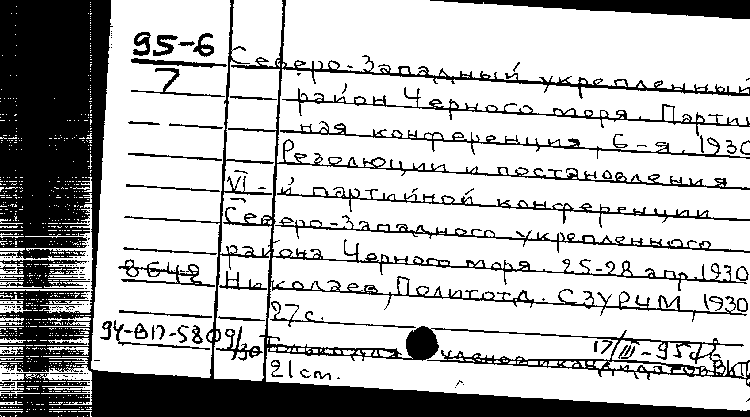 95-6
7
Северо-Западный укрепленный
район Черного моря. Партий
ная конференция, 6-я. 1930
Резолюции и постановления
VI-й партийной конференции
Северо-Западного укрепленного
района Черного моря. 25-28 апр. 1930
8648 Николаев, Политотд. СЗУРЧМ, 1930
27с.
94-ВП-5809/30 17/III-95г
Только для членов и кандидатов ВКП
21 cm.